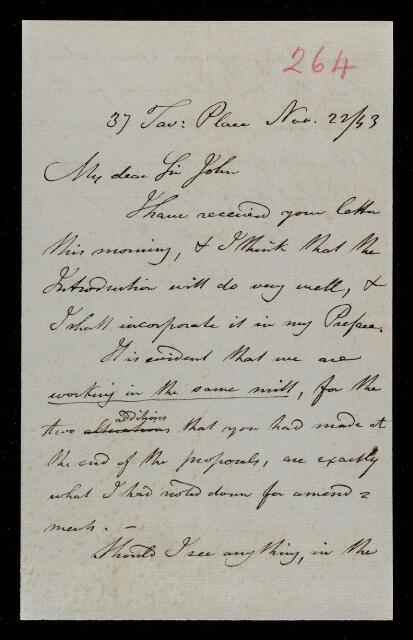 264
37 Tavs: Place Nov. 22/53
My dear Sir John
I have received your letter
this morning, & I think that the
Introduction will do very well, &
I shall incorporate it in my Preface.
It is evident that we are
working in the same mill, for the
additions
two alterations that you had made at
the end of the proposals, are exactly
what I had noted down for amend=
ments. –
Should I see anything, in the